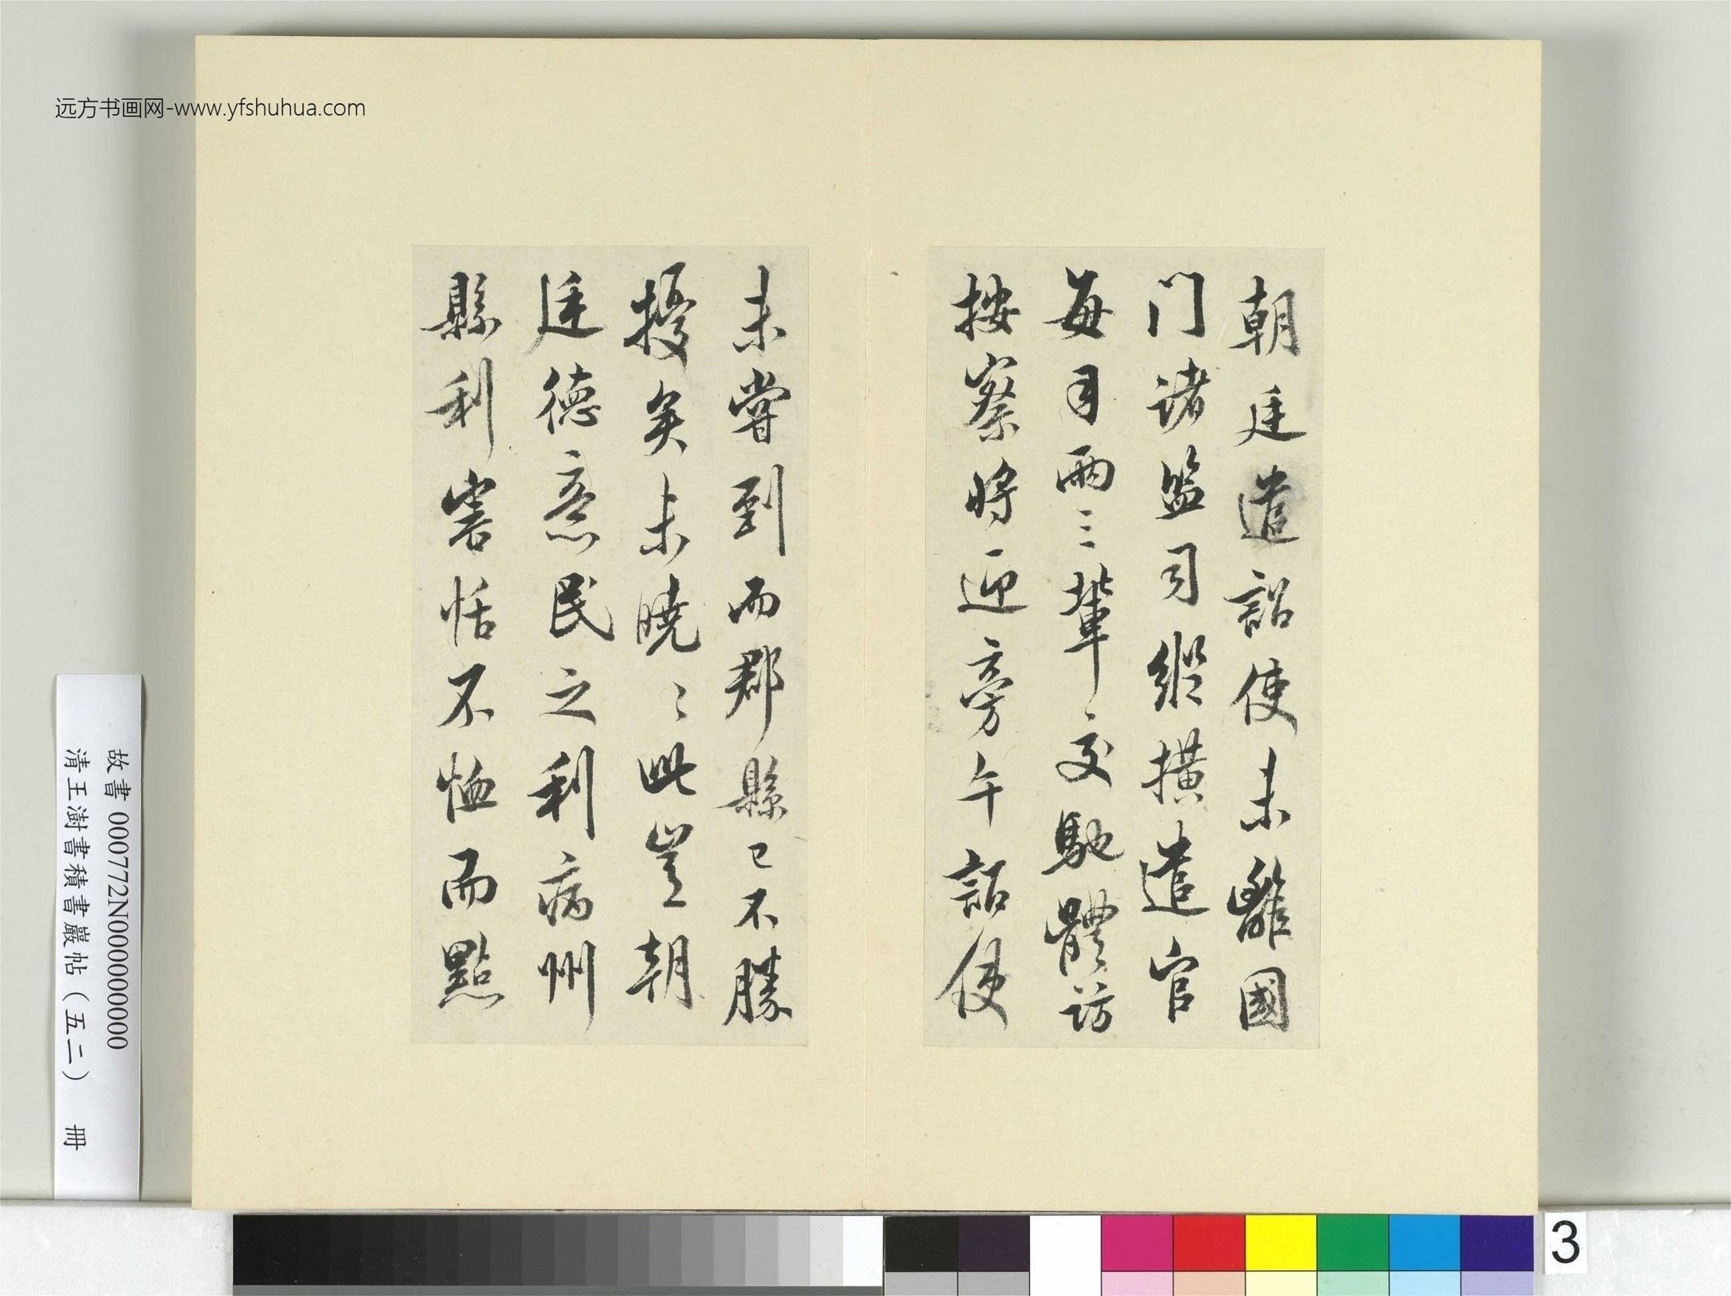 远方书画网-www.yfshuhua.com
朝廷遣詔使未離國
门諸监司縱横遣官
每月兩三輩交馳體訪
按察將迎旁午詔使
未嘗到而郡縣已不勝
擾矣未曉〻此豈朝
廷德意民之利病州
縣利害恬不恤而點
故書 000772N000000000
清王澍書積書巖帖（五二） 冊
3